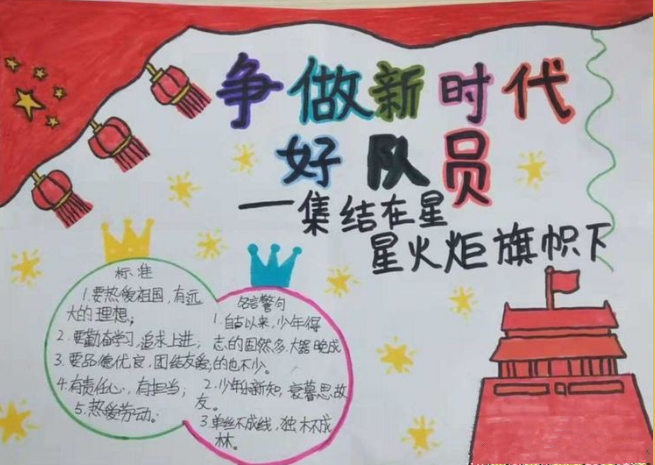 争做新时代
好队员
——集结在星
星火炬旗帜下
标准
1.要热爱祖国,有远
大的理想;
2.要勤奋学习,追求上进;
3.要品德优良,团结友爱;
4.有责任心,有担当;
5.热爱劳动。
名言警句
1.自古以来,少年得
志的固然多,大器晚成
的也不少。
2.少年乐新知,衰暮思故
友。
3.单丝不成线,独木不成
林。